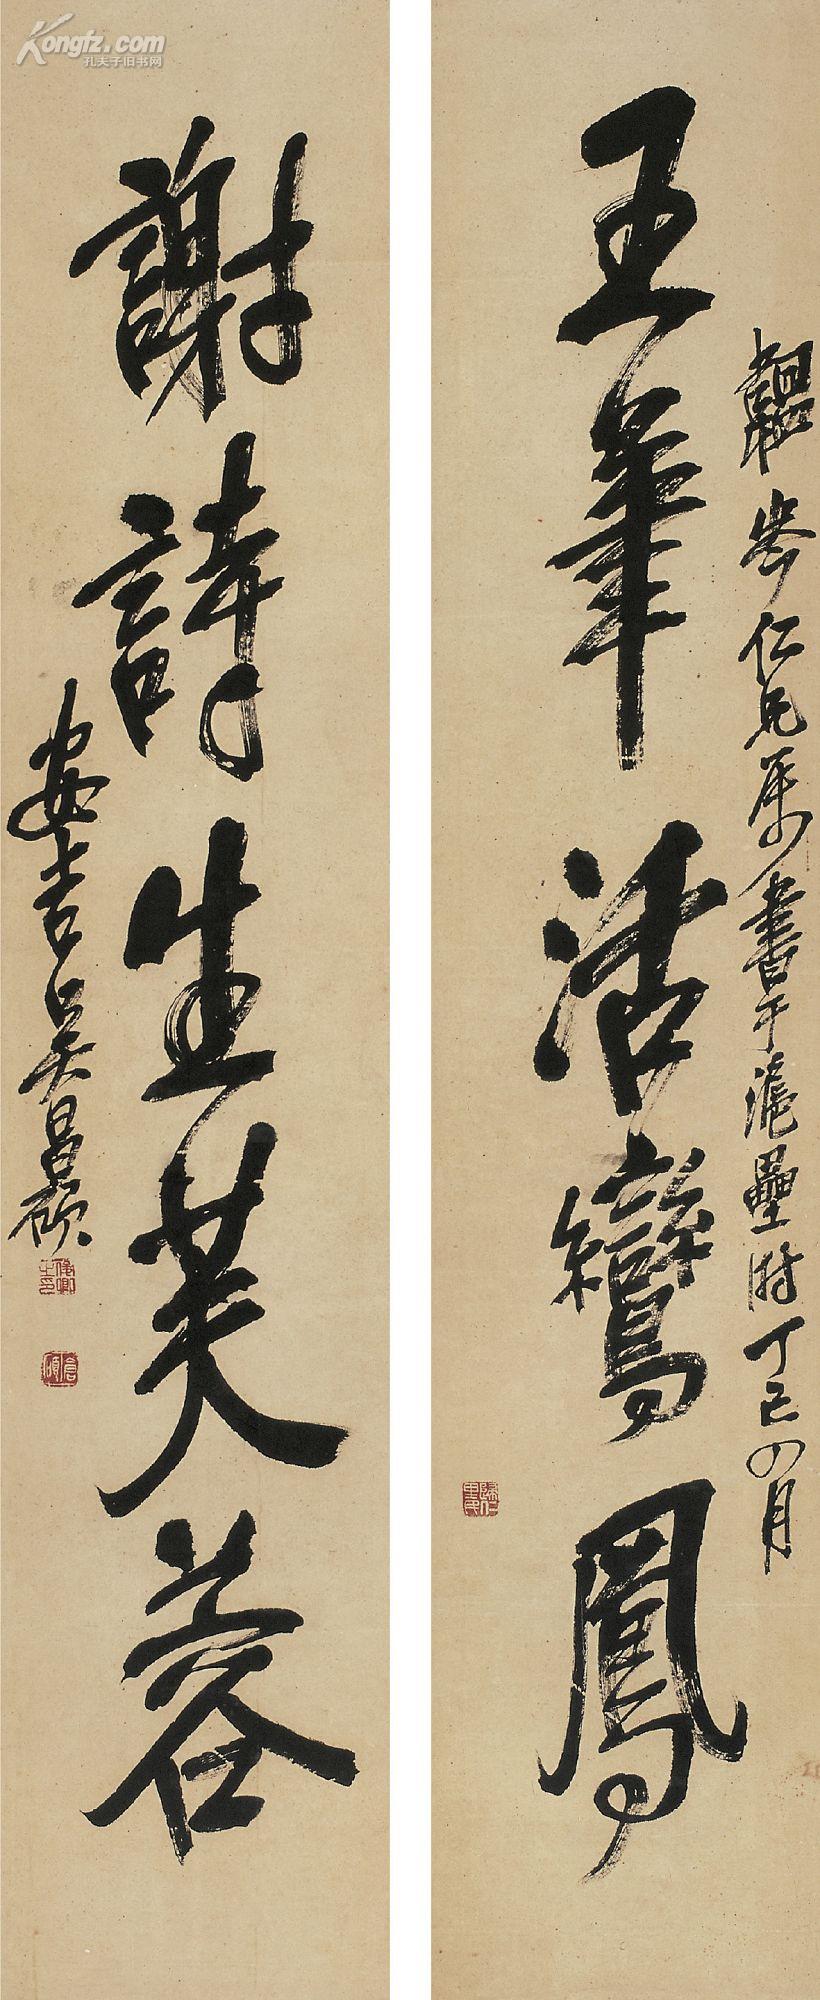 Kongfz.com
孔夫子旧书网
王筆活鸞鳳
韞岑仁兄属書于滬壘時丁巳四月
歸仁里民
謝詩生芙蓉
安吉吳昌碩
俊卿之印
倉碩